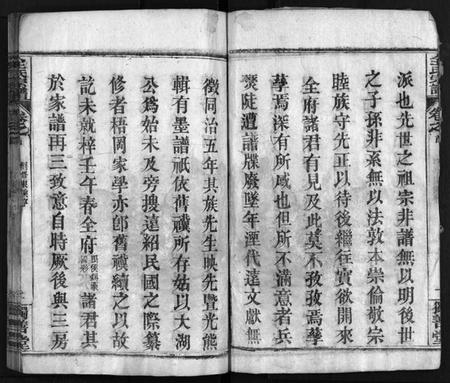 派也先世之祖宗非譜無以明後世
之子孫非系無以法敦本崇倫敬宗
睦族守先正以待後繼往實欲開來
全府諸君有見及此莫不孜孜焉孳
孳焉深有所慼也但所不滿意者兵
燹陡遭譜牒廢墜年湮代遠文獻無
徵同治五年其族先生映先暨光熊
輯有墨譜祇依舊禩所存姑以大湖
公為始未及旁搜遠紹民國之際纂
修者梧岡家學亦郎舊禩續之以故
記未就梓壬午春全府諸君其
於家譜再三致意自時厥後與三房
全氏宗譜
卷之
獨善堂